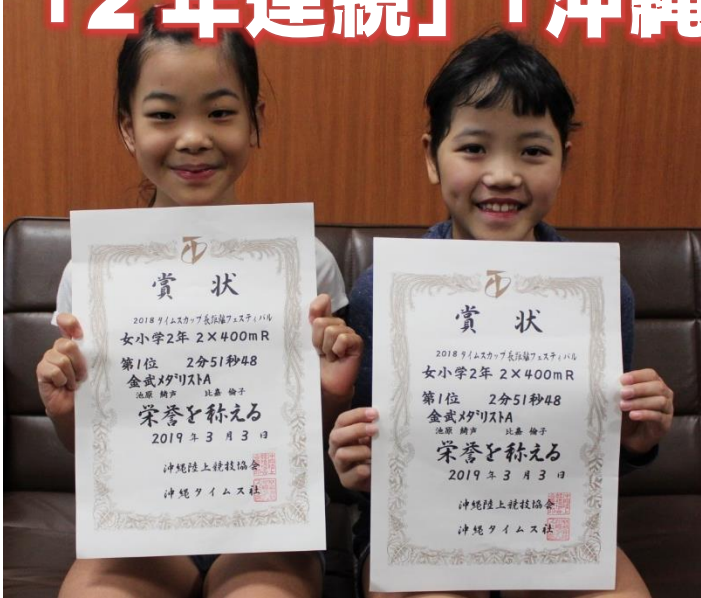 「2年連続」「沖縄
賞状
2018 タイムスカップ長距離フェスティバル
女小学2年 2×400mR
第1位 2分51秒48
金武メダリストA
池原 綺声 比嘉 倫子
栄誉を称える
2019年3月3日
沖縄陸上競技協会
沖縄タイムス社
賞状
2018 タイムスカップ長距離フェスティバル
女小学2年 2×400mR
第1位 2分51秒48
金武メダリストA
池原 綺声 比嘉 倫子
栄誉を称える
2019年3月3日
沖縄陸上競技協会
沖縄タイムス社